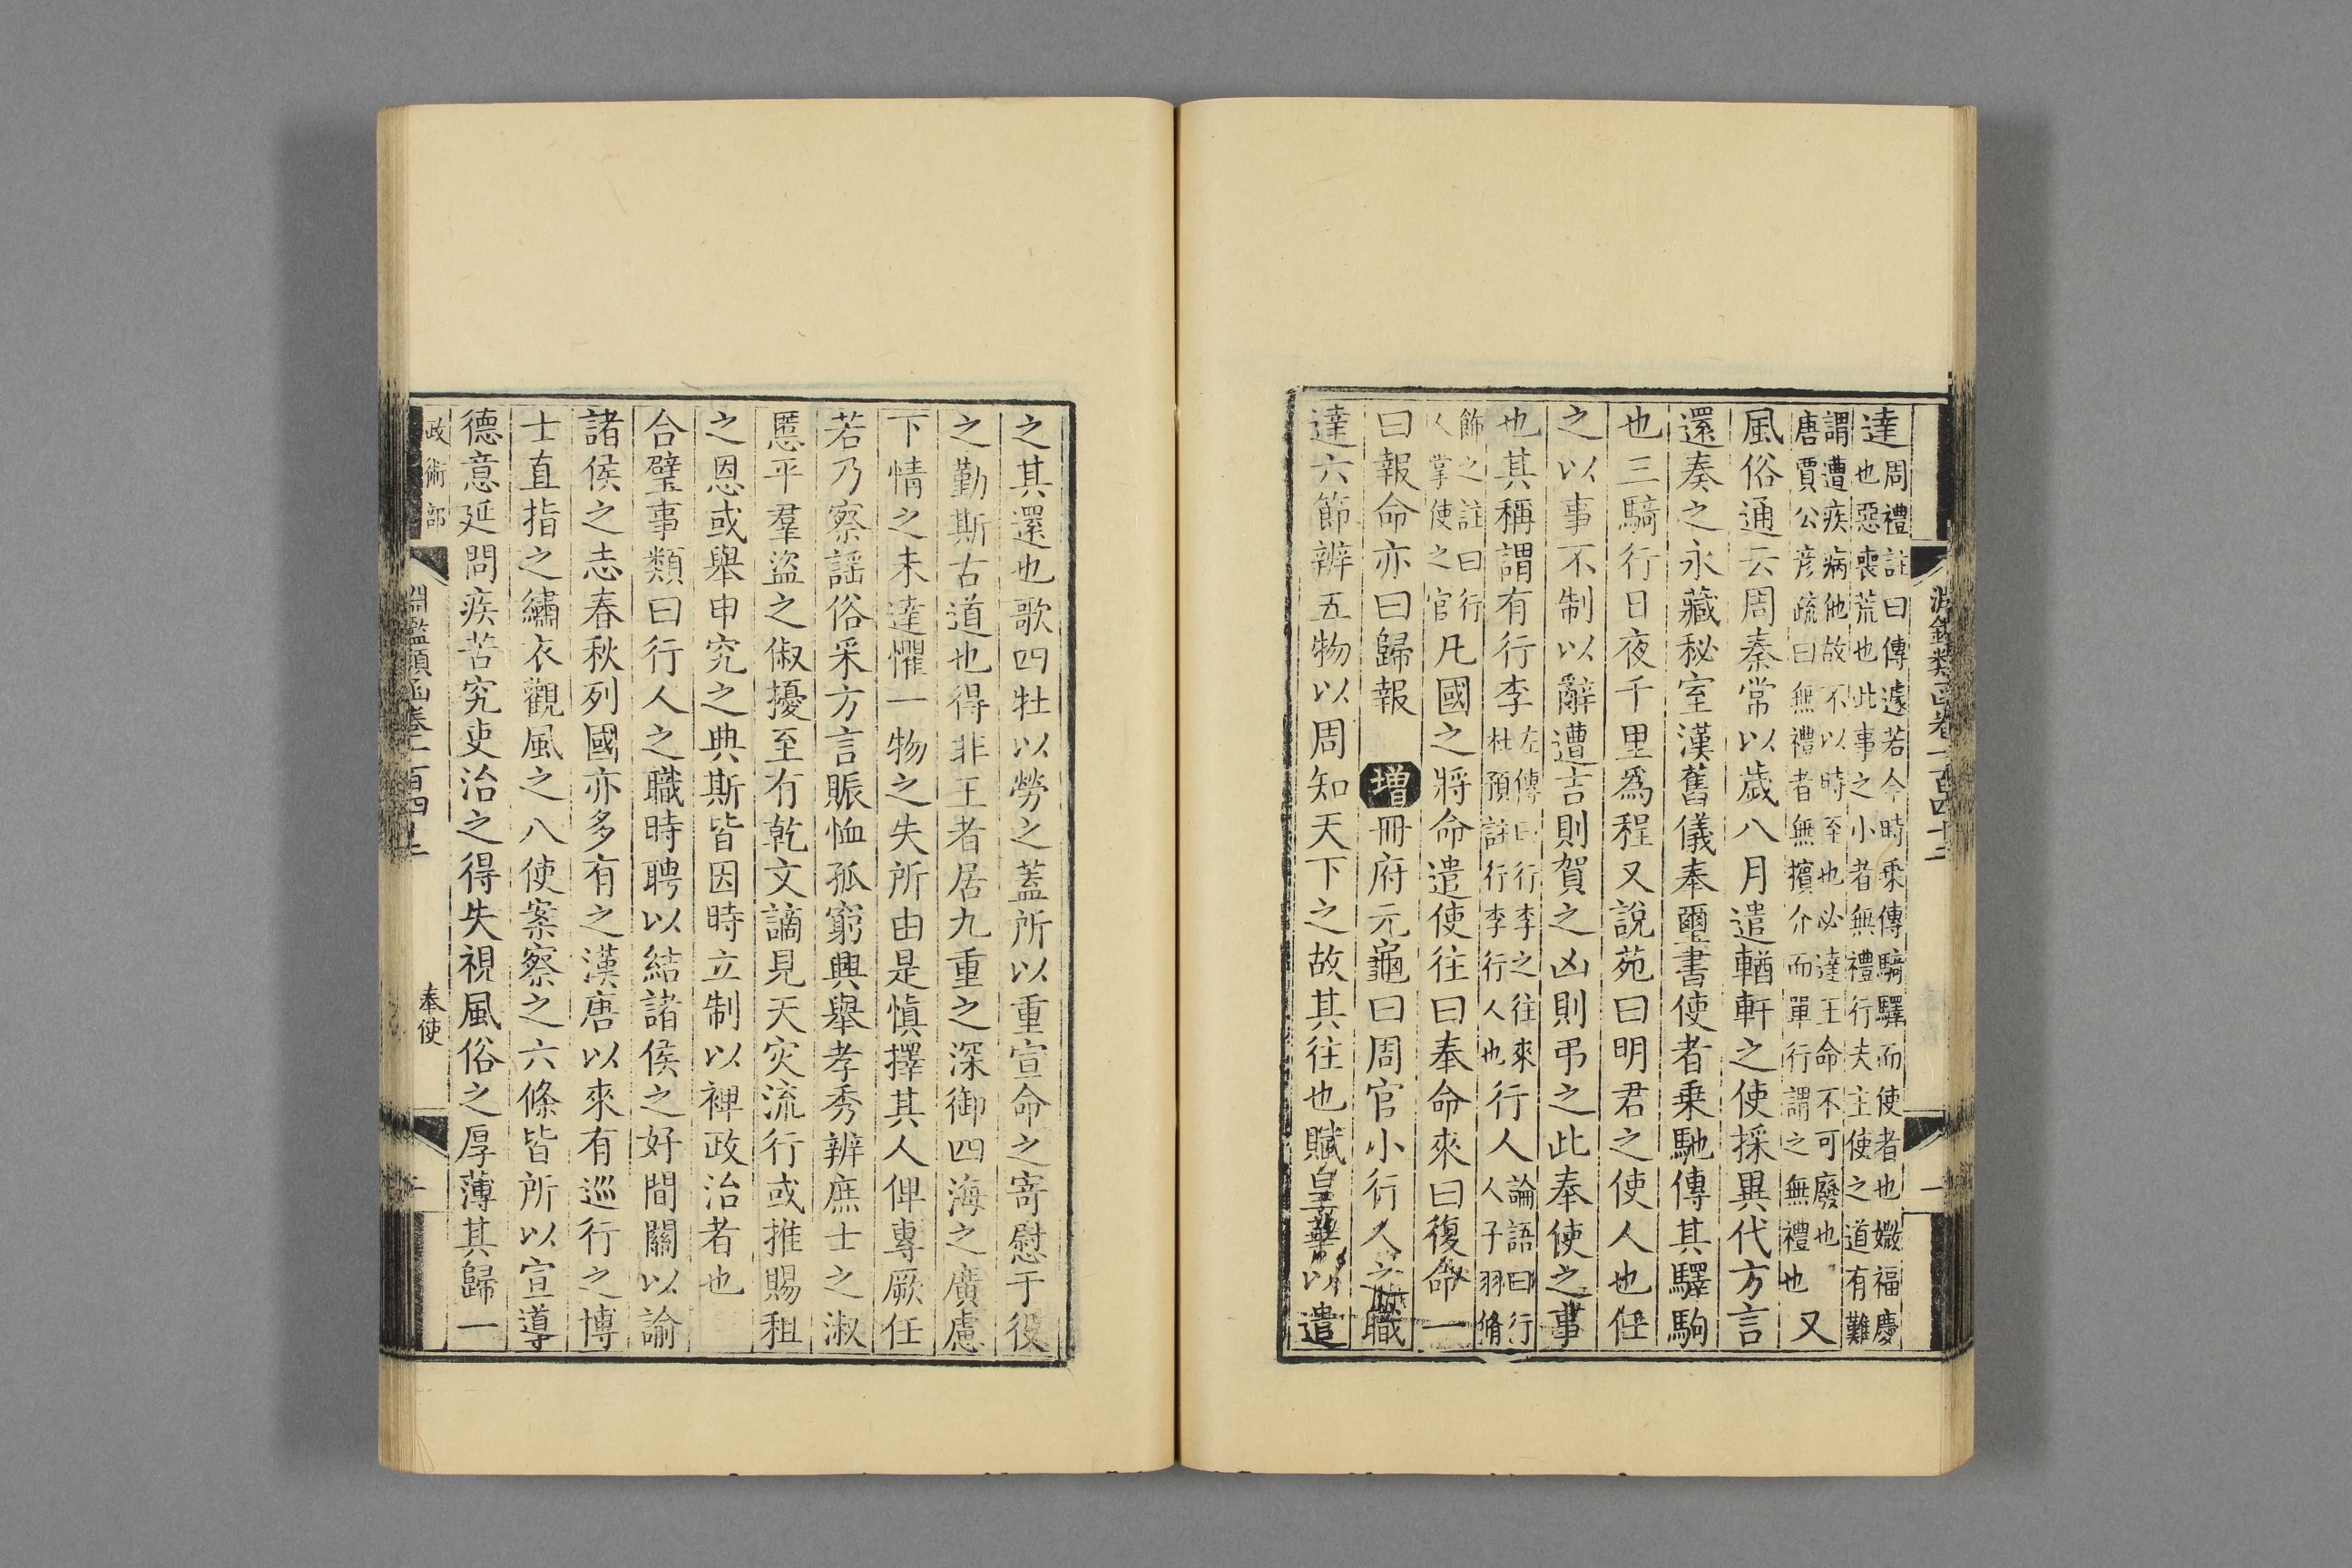 淵鑑類函卷一百四十二
一
達周禮註曰傳遽若今時乗傳騎驛而使者也媺福慶也惡喪荒也此事之小者無禮行夫主使之道有難
謂遭疾病他故不以時至也必達王命不可廢也唐賈公彦疏曰無禮者無擯介而單行謂之無禮也又
風俗通云周秦常以歲八月遣輶軒之使採異代方言
還奏之永藏秘室漢舊儀奉璽書使者乗馳傳其驛駒
也三騎行日夜千里爲程又說苑曰明君之使人也任
之以事不制以辭遭吉則賀之凶則弔之此奉使之事
也其稱謂有行李左傳曰行李之往來杜預註行李行人也行人論語曰行人子羽脩
飾之註曰行人掌使之官凡國之將命遣使往曰奉命來曰復命一
曰報命亦曰歸報增冊府元龜曰周官小行人之職
達六節辨五物以周知天下之故其往也賦皇華以遣
之其還也歌四牡以勞之蓋所以重宣命之寄慰于役
之勤斯古道也得非王者居九重之深御四海之廣慮
下情之未達懼一物之失所由是慎擇其人俾專厥任
若乃察謡俗采方言賑恤孤窮興舉孝秀辨庶士之淑
慝平羣盗之俶擾至有乾文謫見天灾流行或推賜租
之恩或舉申究之典斯皆因時立制以裨政治者也
合璧事類曰行人之職時聘以結諸侯之好間關以諭
諸侯之志春秋列國亦多有之漢唐以來有巡行之博
士直指之繡衣觀風之八使案察之六條皆所以宣導
德意延問疾苦究吏治之得失視風俗之厚薄其歸一
政術部
淵鑑類函卷一百四十二
奉使